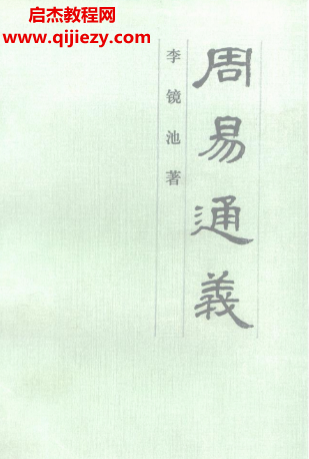 启杰教程网
www.qijiezy.com
周易通義
李镜池著